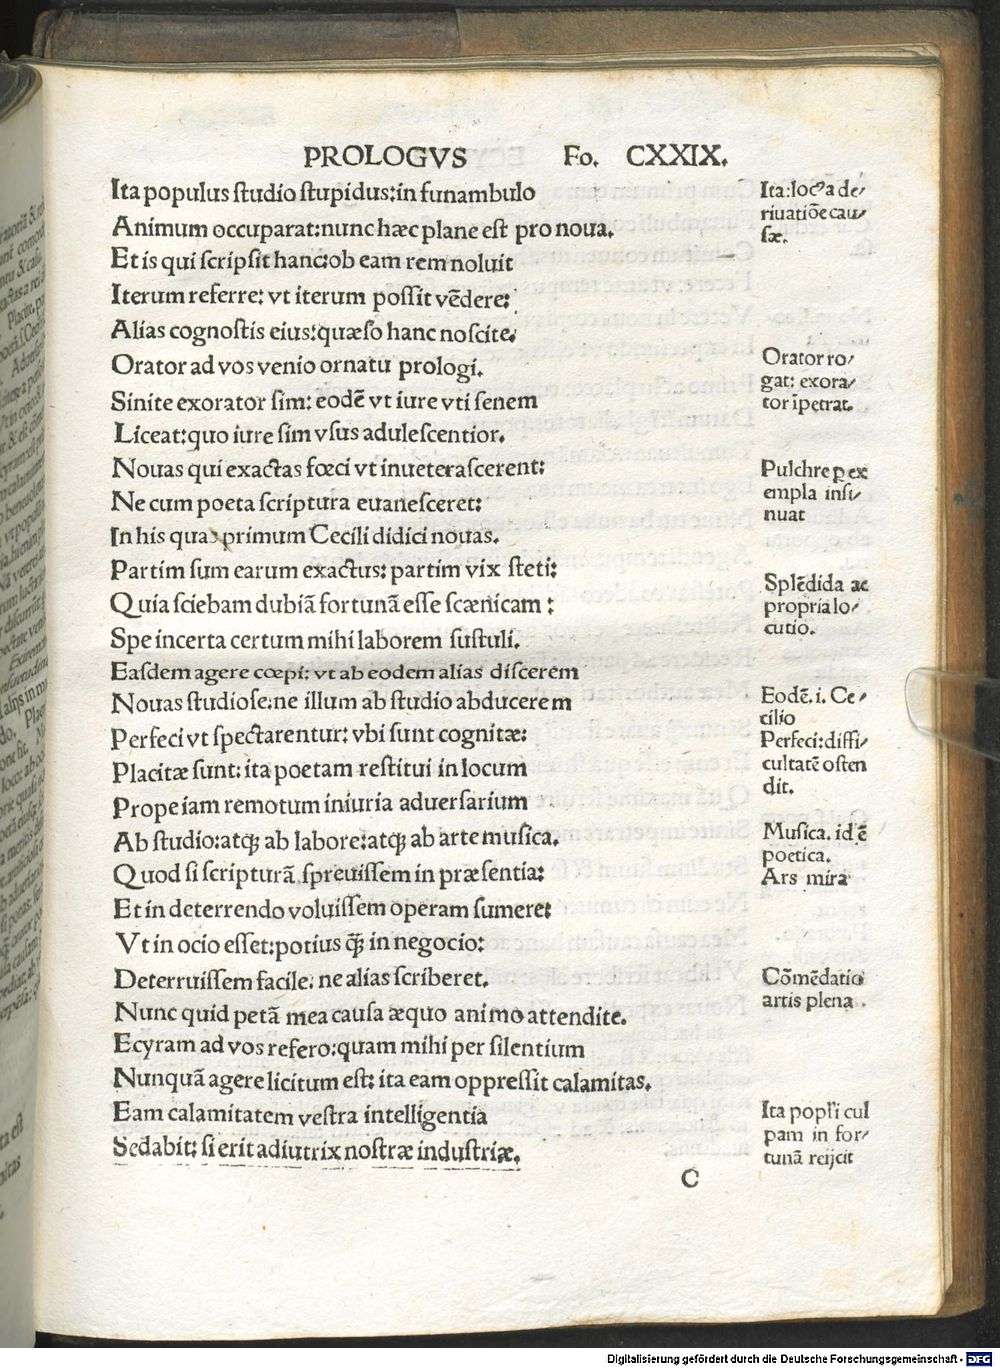 PROLOGVS Fo. CXXIX.
Ita populus studio stupidus:in funambulo
Animum occuparat:nunc hæc plane est pro noua.
Et is qui scripsit hanc:ob eam rem noluit
Iterum referre: vt iterum possit vēdere:
Alias cognostis eius:quæso hanc noscite.
Orator ad vos venio ornatu prologi.
Sinite exorator sim: eodē vt iure vti senem
Liceat:quo iure sim vsus adulescentior.
Nouas qui exactas fœci vt inueterascerent:
Ne cum poeta scriptura euanesceret:
In his quas primum Cecili didici nouas.
Partim sum earum exactus: partim vix steti:
Quia sciebam dubiā fortunā esse scænicam :
Spe incerta certum mihi laborem sustuli.
Easdem agere cœpi: vt ab eodem alias discerem
Nouas studiose:ne illum ab studio abducerem
Perfeci vt spectarentur: vbi sunt cognitæ:
Placitæ sunt: ita poetam restitui in locum
Prope iam remotum iniuria aduersarium
Ab studio:atq; ab labore:atq; ab arte musica.
Quod si scripturā spreuissem in præsentia:
Et in deterrendo voluissem operam sumere:
Vt in ocio esset:potius q̄ in negocio:
Deterruissem facile: ne alias scriberet.
Nunc quid petā mea causa æquo animo attendite.
Ecyram ad vos refero:quam mihi per silentium
Nunquā agere licitum est: ita eam oppressit calamitas.
Eam calamitatem vestra intelligentia
Sedabit: si erit adiutrix nostræ industriæ.
C
Ita:locꝰ a de/
riuatiōe cau/
sæ.
Orator ro/
gat: exora/
tor īpetrat.
Pulchre p ex
empla insi/
nuat
Splēdida ac
propria lo/
cutio.
Eodē. i. Ce/
cilio
Perfeci:diffi/
cultatē osten
dit.
Musica. id ē
poetica.
Ars mira
Cōmēdatio
artis plena.
Ita popli cul
pam in for/
tunā reijcit
Digitalisierung gefördert durch die Deutsche Forschungsgemeinschaft - DFG